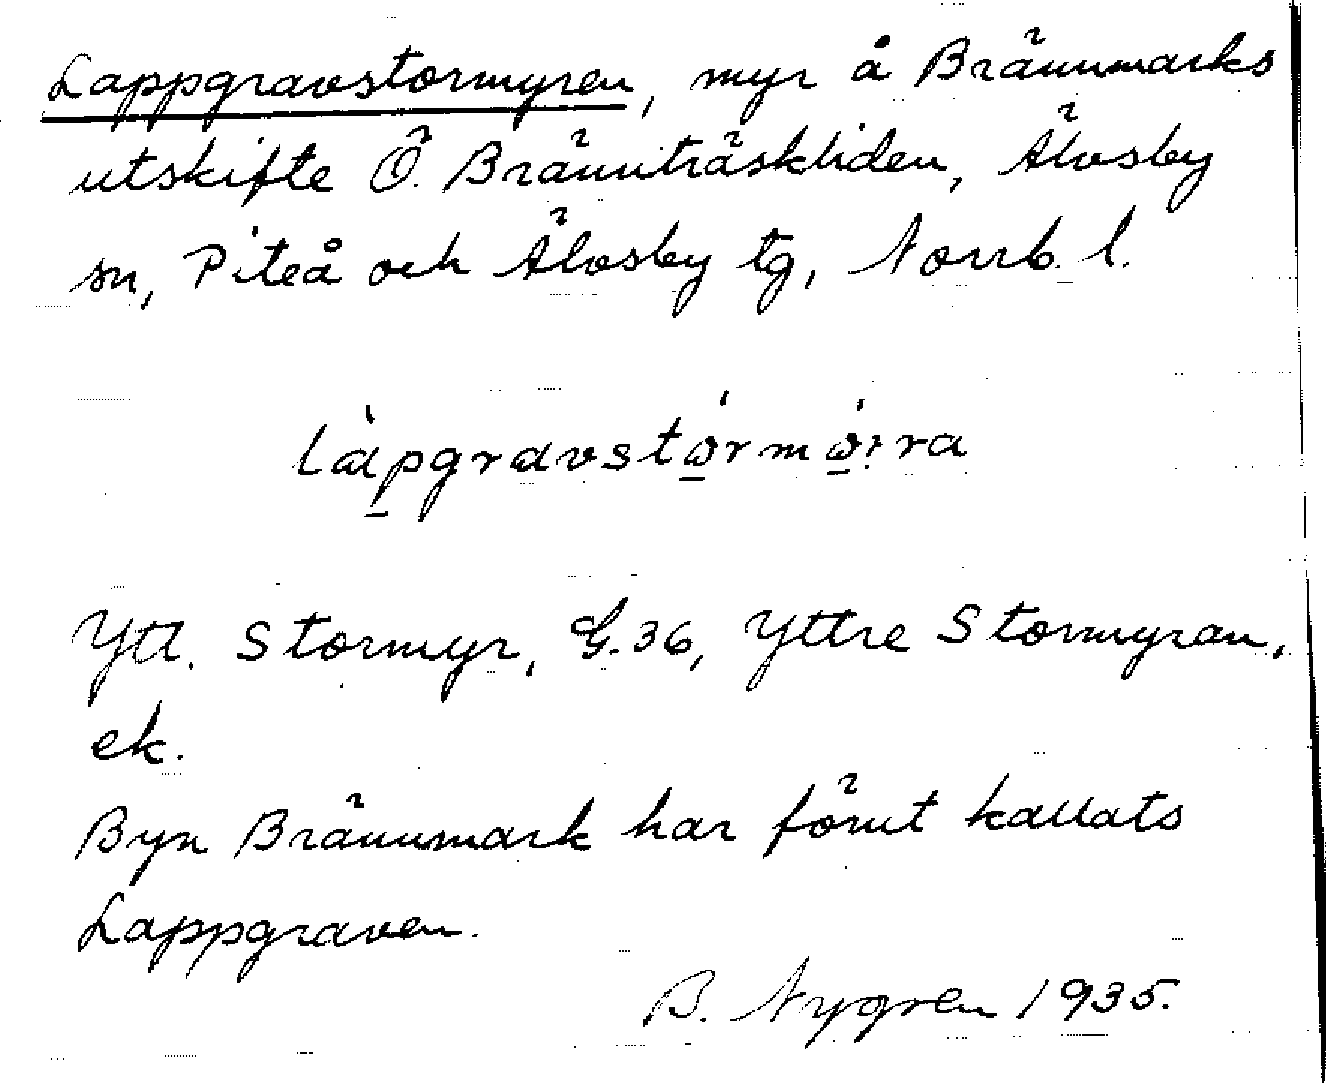 Lappgravstormyren, myr å Brännmarks
utskifte Ö. Brännträskliden, Älvsby
sn, Piteå och Älvsby tg, Norrb. l.
làpgravstó̠rmó̠:ra
Ytt. Stormyr, G.36, Yttre Stormyran,
ek.
Byn Brännmark har förut kallats
Lappgraven.
B. Nygren 1935.